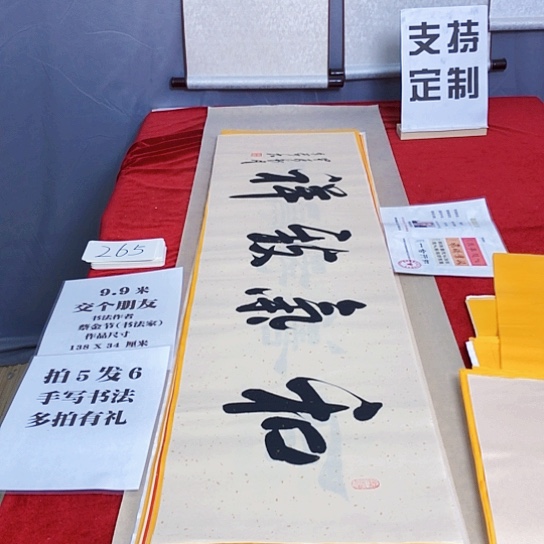 支持
定制
265
9.9 米
交个朋友
书法作者
蔡金节(书法家)
作品尺寸
138 X 34 厘米
拍 5 发 6
手写书法
多拍有礼
和氣致祥